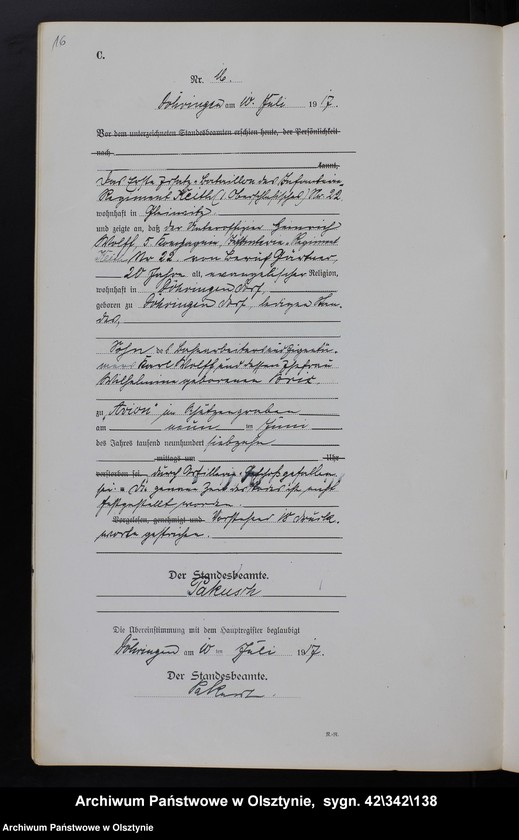 16
C.
Nr. 16.
Döhringen am 10. Juli 1917.
Vor dem unterzeichneten Standesbeamten erschien heute, der Persönlichkeit
nach
kannt,
Das Erste Ersatz-Bataillon des Infanterie-
Regiment Keith (1. Oberschlesisches) Nr. 22
wohnhaft in Gleiwitz
und zeigte an, daß der Unteroffizier Heinrich
Wolff, 5. Kompagnie, Infanterie-Regiment
Keith Nr 22 von Beruf Gärtner,
20 Jahre alt, evangelischer Religion,
wohnhaft in Döhringen Dorf,
geboren zu Döhringen Dorf, ledigen Stan-
des,
Sohn des und Eigentü-
mers Karl Wolff und dessen Ehefrau
Wilhelmine geborenen
zu "Avion" im Schützengraben
am neun ten Juni
des Jahres tausend neunhundert siebzehn
mittags um Uhr
verstorben sei. durch Artillerie-Geschoß gefallen
sei. Die genaue Zeit des Todes ist nicht
festgestellt worden.
Vorgelesen, genehmigt und Vorstehend 18 Druck-
worte gestrichen.
Der Standesbeamte.
Pakusch
Die Übereinstimmung mit dem Hauptregister beglaubigt
Döhringen am 10 ten Juli 1917.
Der Standesbeamte.
Pakusch
R.-R.
Archiwum Państwowe w Olsztynie, sygn. 42\342\138
Archiwum Państwowe w Olsztynie